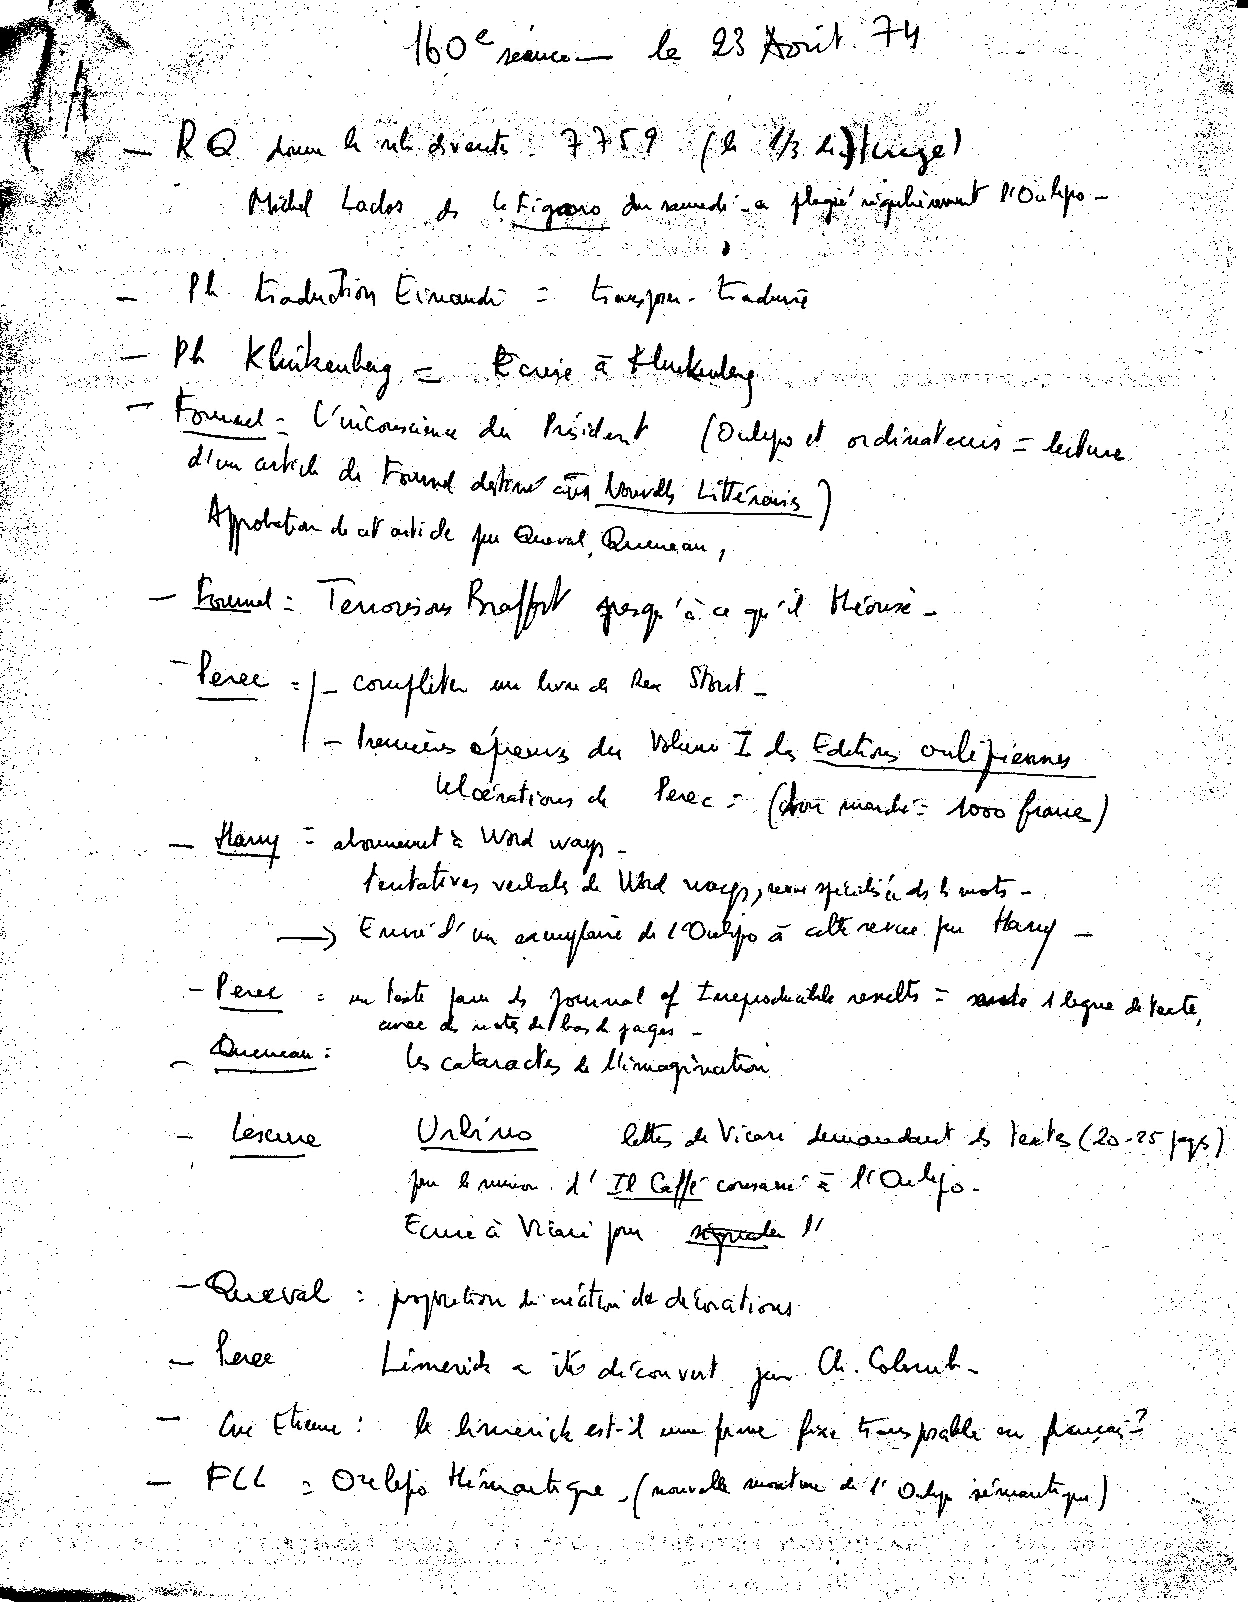 160e séance — le 23 Août 74
— RQ donne le nb de vente : 7759 (le 1/3 du tirage)
Michel Laclos ds le Figaro du samedi - a plagié régulièrement l'Oulipo —
— Ph traduction Einaudi = transpo - traduire
— Ph Klinkenberg = Ecrire à Klinkenberg
— Fournel = L'inconscience du Président (Oulipo et ordinateurs = lecture
d'un article de Fournel destiné aux Nouvelles Littéraires)
Approbation de cet article par Queval, Queneau,
— Fournel = Terrorisons Braffort jusqu'à ce qu'il théorise —
— Perec = | — compléter un livre de Rex Stout —
— Premières épreuves du Volume I des Editions oulipiennes
Ulcérations de Perec = (bon marché = 1000 francs)
— Harry = abonnement à Word ways —
tentatives verbales de Word ways, revue spécialisée ds les mots —
→ Envoi d'un exemplaire de l'Oulipo à cette revue par Harry —
— Perec = un texte pour ds Journal of Irreproducible results = 1 ligne de texte,
avec des notes de bas de pages —
— Queneau : les cataractes de l'imagination
— Lescure Urbino lettres de Vicari demandant des textes (20-25 pages)
pour le numéro d'Il Caffé consacré à l'Oulipo.
Ecrire à Vicari pour signaler l'
— Queval : proposition de création de décorations
— Perec Limerick a été découvert par Ch. Colomb —
— Luc Etienne : le limerick est-il une forme fixe transposable en français ?
— FLL = Oulipo sémantique - (nouvelle mouture de l'Oulipo sémantique)